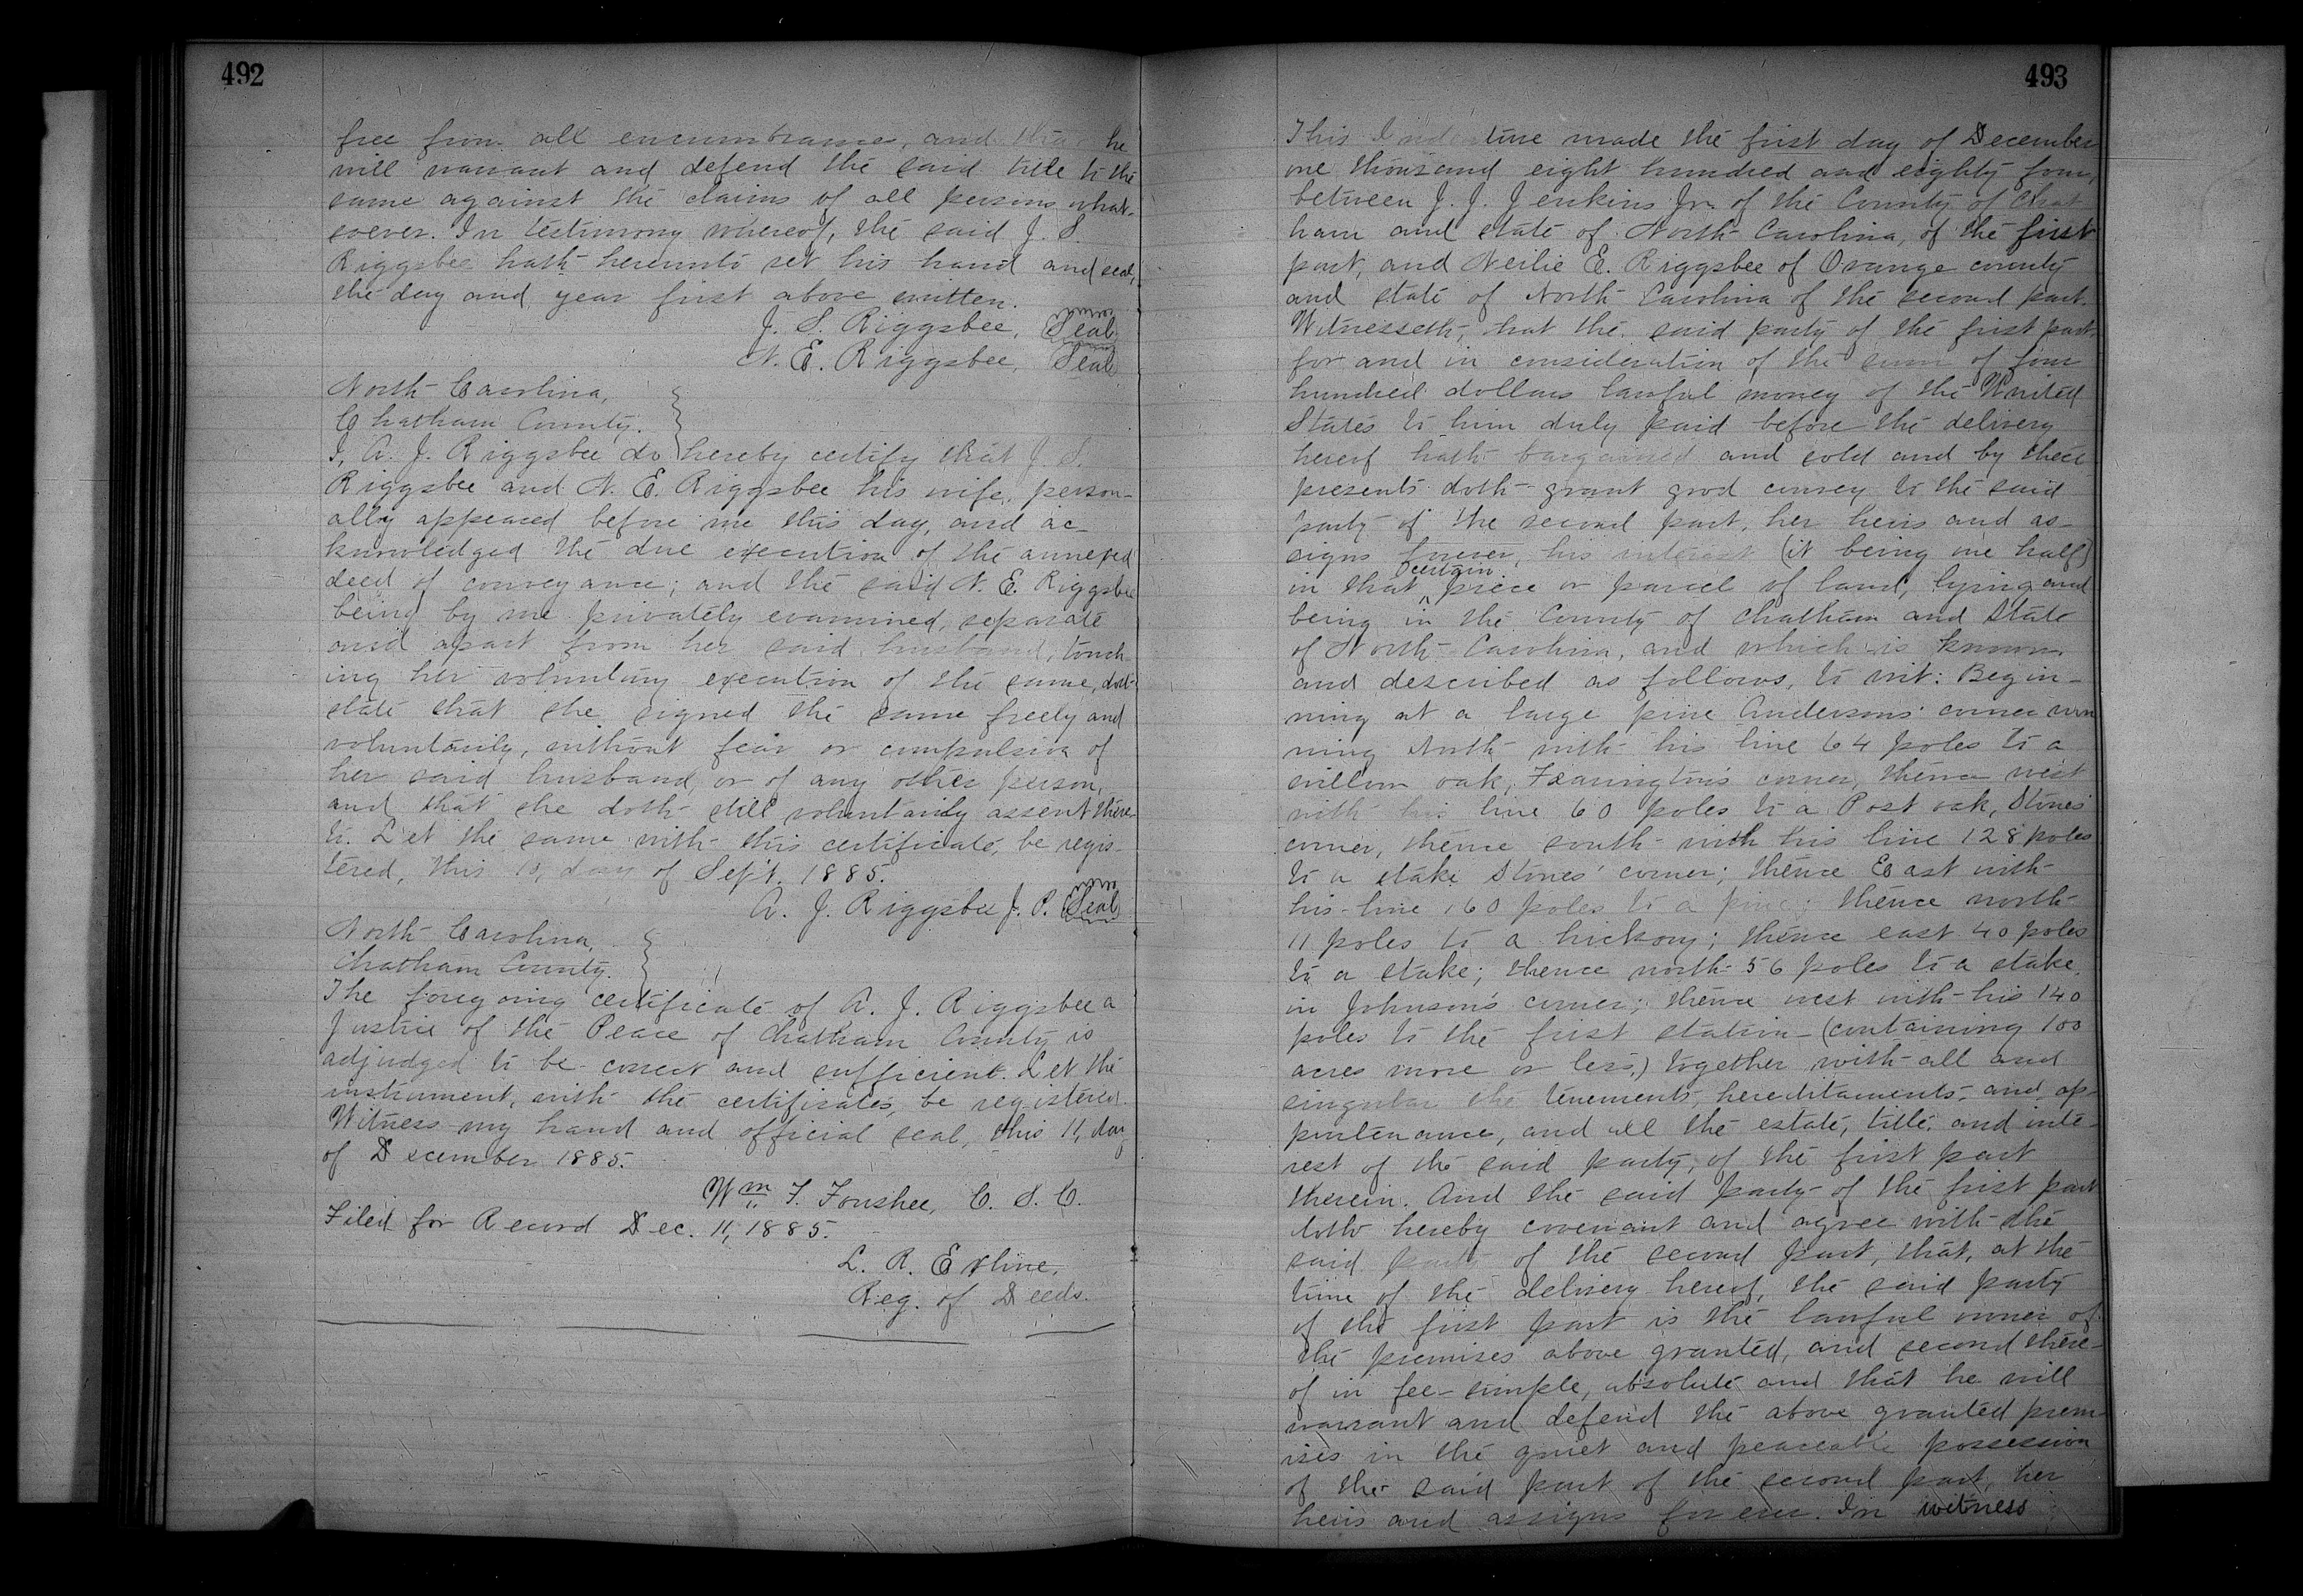 492
free from all encumbrances, and that he
will warrant and defend the said title to the
same against the claims of all persons what-
soever. In testimony whereof, the said J. S.
Riggsbee hath hereunto set his hand and seal,
the day and year first above written.
J. S. Riggsbee, Seal
N. E. Riggsbee, Seal
North Carolina,
Chatham County.
I, A. J. Riggsbee do hereby certify that J. S.
Riggsbee and N. E. Riggsbee his wife, person-
ally appeared before me this day, and ac-
knowledged the due execution of the annexed
deed of conveyance; and the said N. E. Riggsbee
being by me privately examined, separate
and apart from her said husband, touch-
ing her voluntary execution of the same, doth
state that she signed the same freely and
voluntarily, without fear or compulsion of
her said husband, or of any other person,
and that she doth still voluntarily assent there-
to. Let the same with this certificate, be regis-
tered, this day of Sept. 1885.
A. J. Riggsbee J. P. Seal
North Carolina,
Chatham County.
The foregoing certificate of A. J. Riggsbee a
Justice of the Peace of Chatham County is
adjudged to be correct and sufficient. Let the
instrument, with the certificates, be registered.
Witness my hand and official seal, this 11, day
of December 1885.
Wm F. Foushee, C. S. C.
Filed for Record Dec. 11, 1885.
L. R. Exline,
Reg. of Deeds.
493
This Indenture made the first day of December
one thousand eight hundred and eighty four,
between J. J. Jenkins Jr. of the County of Chat
ham and state of North Carolina, of the first
part, and Neilie E. Riggsbee of Orange county
and state of North Carolina of the second part.
Witnesseth, that the said party of the first part,
for and in consideration of the sum of four
hundred dollars lawful money of the United
States to him duly paid before the delivery
hereof hath bargained and sold and by these
presents doth grant good convey to the said
party of the second part, her heirs and as-
signs forever, his interest (it being one half)
in that certain piece or parcel of land, lying and
being in the County of Chatham and State
of North Carolina, and which is known
and described as follows, to wit: Begin-
ning at a large pine Andersons' corner run
ning North with his line 64 poles to a
willow oak, Fearington's corner, thence west
with his line 60 poles to a Post oak, Stones'
corner, thence south with his line 128 poles
to a stake Stones' corner; thence East with
his line 160 poles to a pine; thence north
11 poles to a hickory; thence east 40 poles
to a stake; thence north 56 poles to a stake,
in Johnson's corner; thence west with his 140
poles to the first station (containing 100
acres more or less,) together with all and
singular the tenements, hereditaments, and ap-
purtenance, and all the estate, title, and inte-
rest of the said party, of the first part
therein. And the said party of the first part
doth hereby covenant and agree with the
said party of the second part, that, at the
time of the delivery hereof, the said party
of the first part is the lawful owner of
the premises above granted, and second there-
of in fee-simple, absolute and that he will
warrant and defend the above granted prem-
ises in the quiet and peaceable possession
of the said part of the second part, her
heirs and assigns forever. In witness